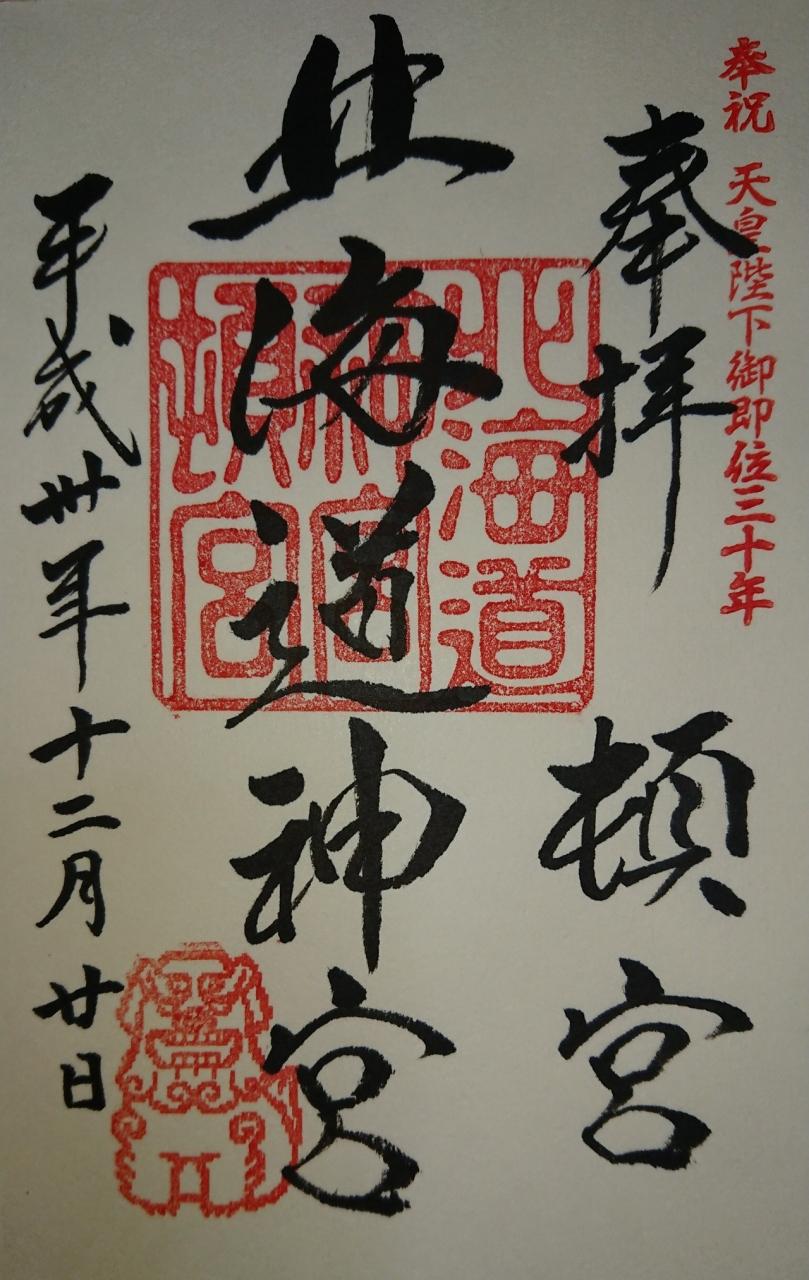 奉祝 天皇陛下御即位三十年
奉拝 頓宮
北海道神宮
北海道
神宮
頓宮
平成卅年十二月廿日